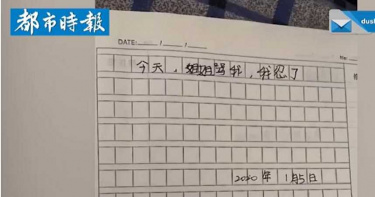 都市時報
dus
DATE: / /
No:
今天，姐姐骂我，我忍了
2020年 1月5日